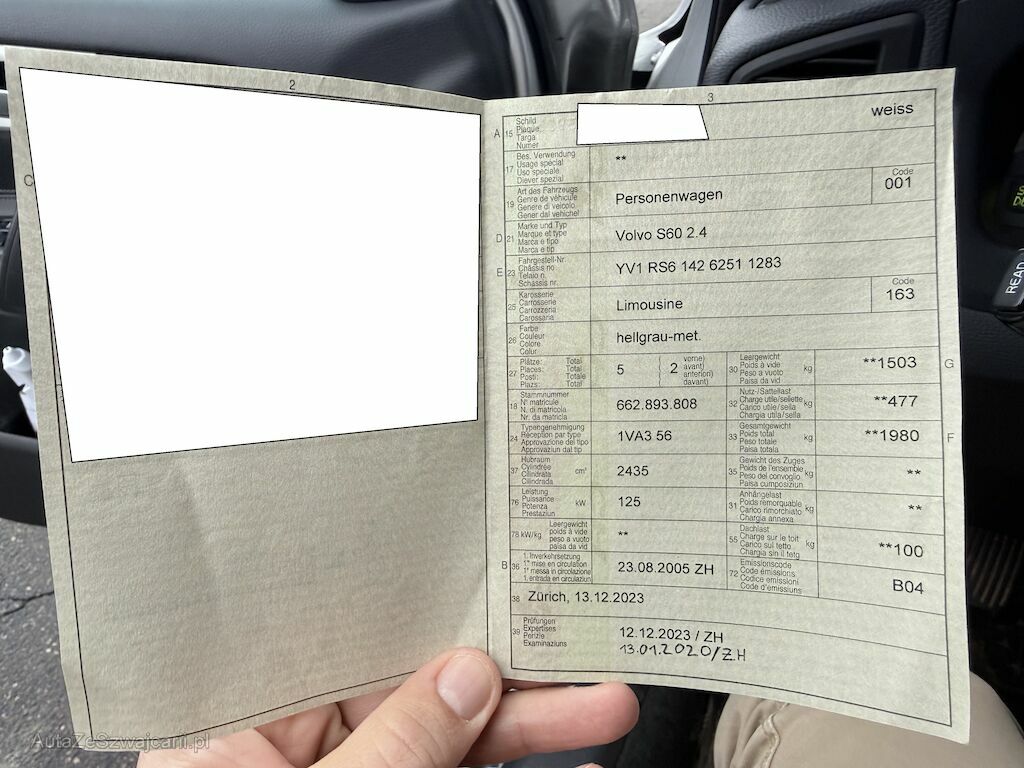 2
3
C
A 15 Schild
Plaque
Targa
Numer
weiss
17 Bes. Verwendung
Usage spécial
Uso speciale
Diever spezial
**
19 Art des Fahrzeugs
Genre de véhicule
Genere di veicolo
Gener dal vehichel
Personenwagen
Code
001
D 21 Marke und Typ
Marque et type
Marca e tipo
Marca e tip
Volvo S60 2.4
E 23 Fahrgestell-Nr.
Châssis no
Telaio n.
Schassis nr.
YV1 RS6 142 6251 1283
25 Karosserie
Carrosserie
Carrozzeria
Carossaria
Limousine
Code
163
26 Farbe
Couleur
Colore
Colur
hellgrau-met.
27 Plätze: Total
Places: Total
Posti: Totale
Plazs: Total
5 ( 2 vorne)
avant)
anteriori)
davant)
30 Leergewicht
Poids à vide
Peso a vuoto
Paisa da vid
kg
**1503
G
18 Stammnummer
N° matricule
N. di matricola
Nr. da matricla
662.893.808
32 Nutz-/Sattellast
Charge utile/sellette
Carico utile/sella
Chargia utila/sella
kg
**477
24 Typengenehmigung
Réception par type
Approvazione del tipo
Approvaziun dal tip
1VA3 56
33 Gesamtgewicht
Poids total
Peso totale
Paisa totala
kg
**1980
F
37 Hubraum
Cylindrée
Cilindrata
Cilindrada
cm³
2435
35 Gewicht des Zuges
Poids de l'ensemble
Peso del convoglio
Paisa cumposiziun
kg
**
76 Leistung
Puissance
Potenza
Prestaziun
kW
125
31 Anhängelast
Poids remorquable
Carico rimorchiato
Chargia annexa
kg
**
78 kW/kg Leergewicht
poids à vide
peso a vuoto
paisa da vid
**
55 Dachlast
Charge sur le toit
Carico sul tetto
Chargia sin il tetg
kg
**100
B 36 1. Inverkehrsetzung
1re mise en circulation
1a messa in circolazione
1. entrada en circulaziun
23.08.2005 ZH
72 Emissionscode
Code émissions
Codice emissioni
Code d'emissiuns
B04
38 Zürich, 13.12.2023
39 Prüfungen
Expertises
Perizie
Examinaziuns
12.12.2023 / ZH
13.01.2020/ZH
READ
AutaZeSzwajcarii.pl